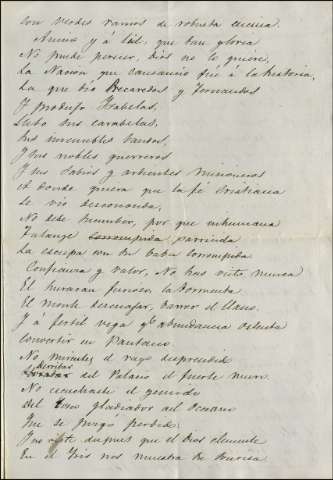 con verdes ramos de robusta encina.
Animo y á tal, que tan gloria
No puede perecer, dios no lo quiere,
La Nacion que cansancio dió á la historia,
La que dió Recaredos y Fernandos
Y produjo Isabelas,
Hubo sus carabelas,
Sus invencibles bandos,
Y sus nobles guerreros
Y sus sabios y ardientes misioneros
A donde quiera que la fé Cristiana
Se vio desconocida,
No debe sucumbir, por que inhumana
Falange corrompida parricida
La escupa con su baba corrompida
Confianza y valor, No has visto nunca
El huracan furioso, la tormenta
El monte descuajar, barrer el llano,
Y á fertil vega qe abundancia ostenta
Convertir en Pantano.
No miraste el rayo desprendido
Derribar del Palacio el fuerte muro.
No escuchaste el gemido
Del gladiador del Oceano
Que se juzgó perdido,
Pues despues que el Dios clemente
En el Iris nos muestra la